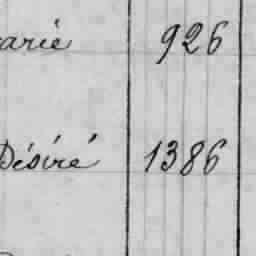 arie 926
Désiré 1386